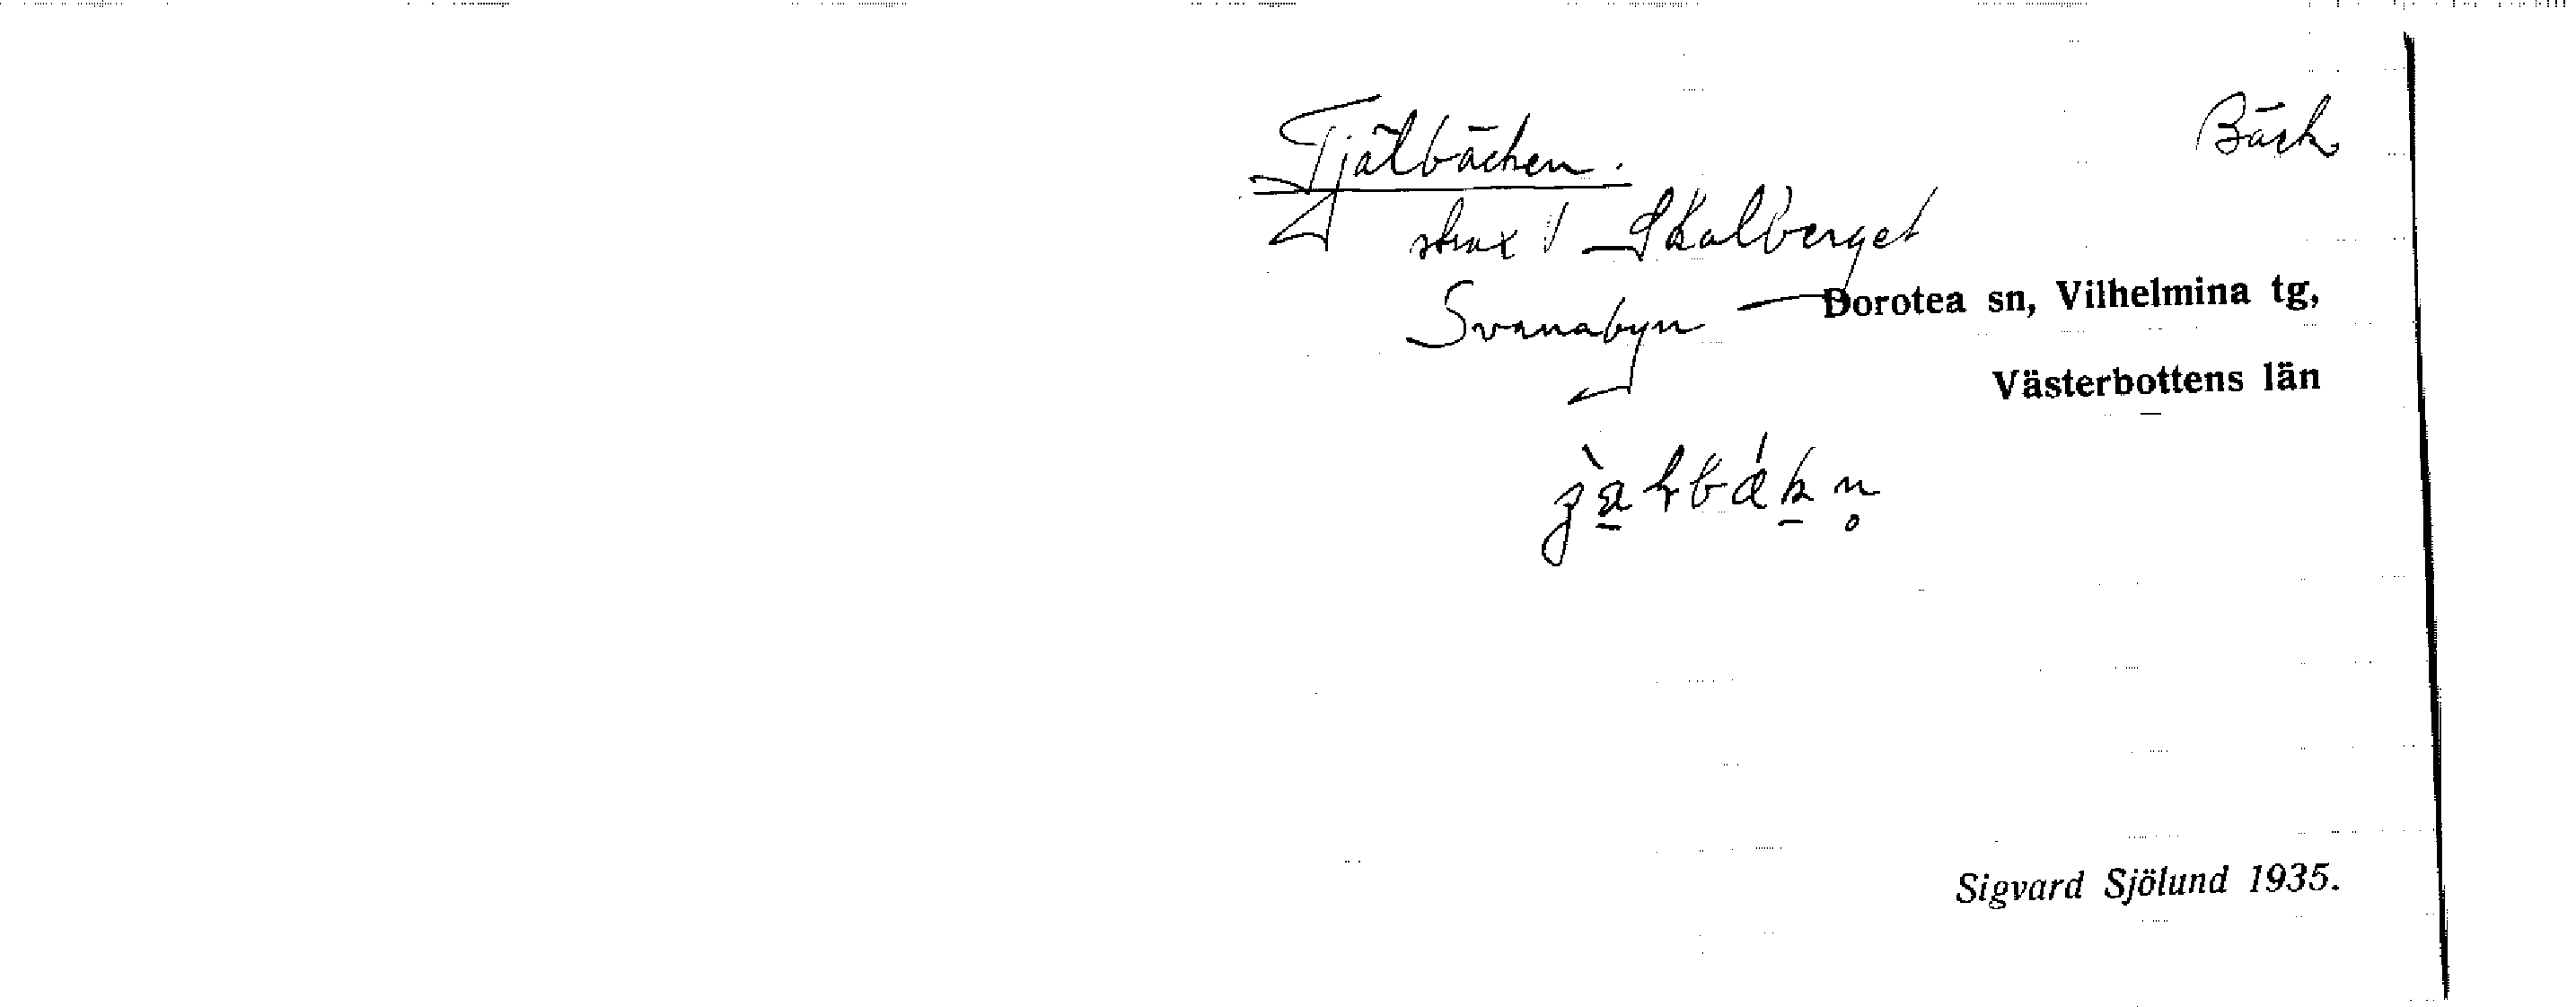 Tjälbäcken. Bäck
strax Skalberget
Svanabyn Dorotea sn, Vilhelmina tg,
Västerbottens län
Sigvard Sjölund 1935.